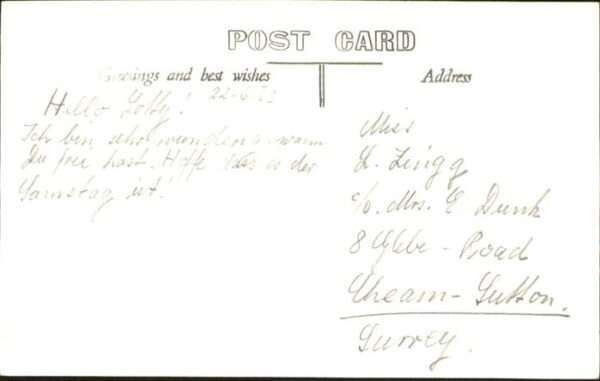 POST CARD
Greetings and best wishes
Address
22-6-53
Hello Lotty!
Ich bin sehr wann
Du frei hast. Hoffe das es der
Samstag ist!
Miss
L. Zingg
c/o. Mrs. E Dunk
8 Glebe - Road
Cheam - Sutton.
Surrey.